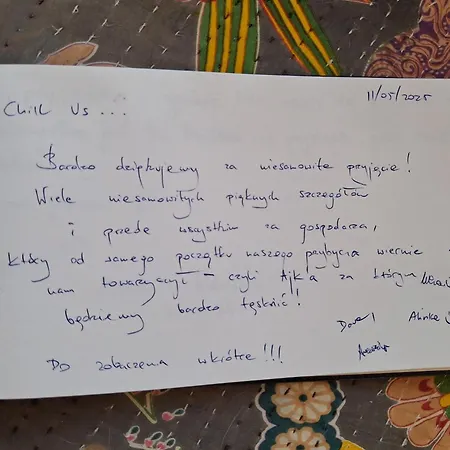 11/05/2025
Chill Us...
Bardzo dziękujemy za niesamowite przyjęcie!
Wiele niesamowitych pięknych szczegółów
i przede wszystkim za gospodarza,
który od samego początku naszego przybycia wiernie
nam towarzyszył – czyli Ajk'a za którym
będziemy bardzo tęsknić!
Do zobaczenia wkrótce!!!